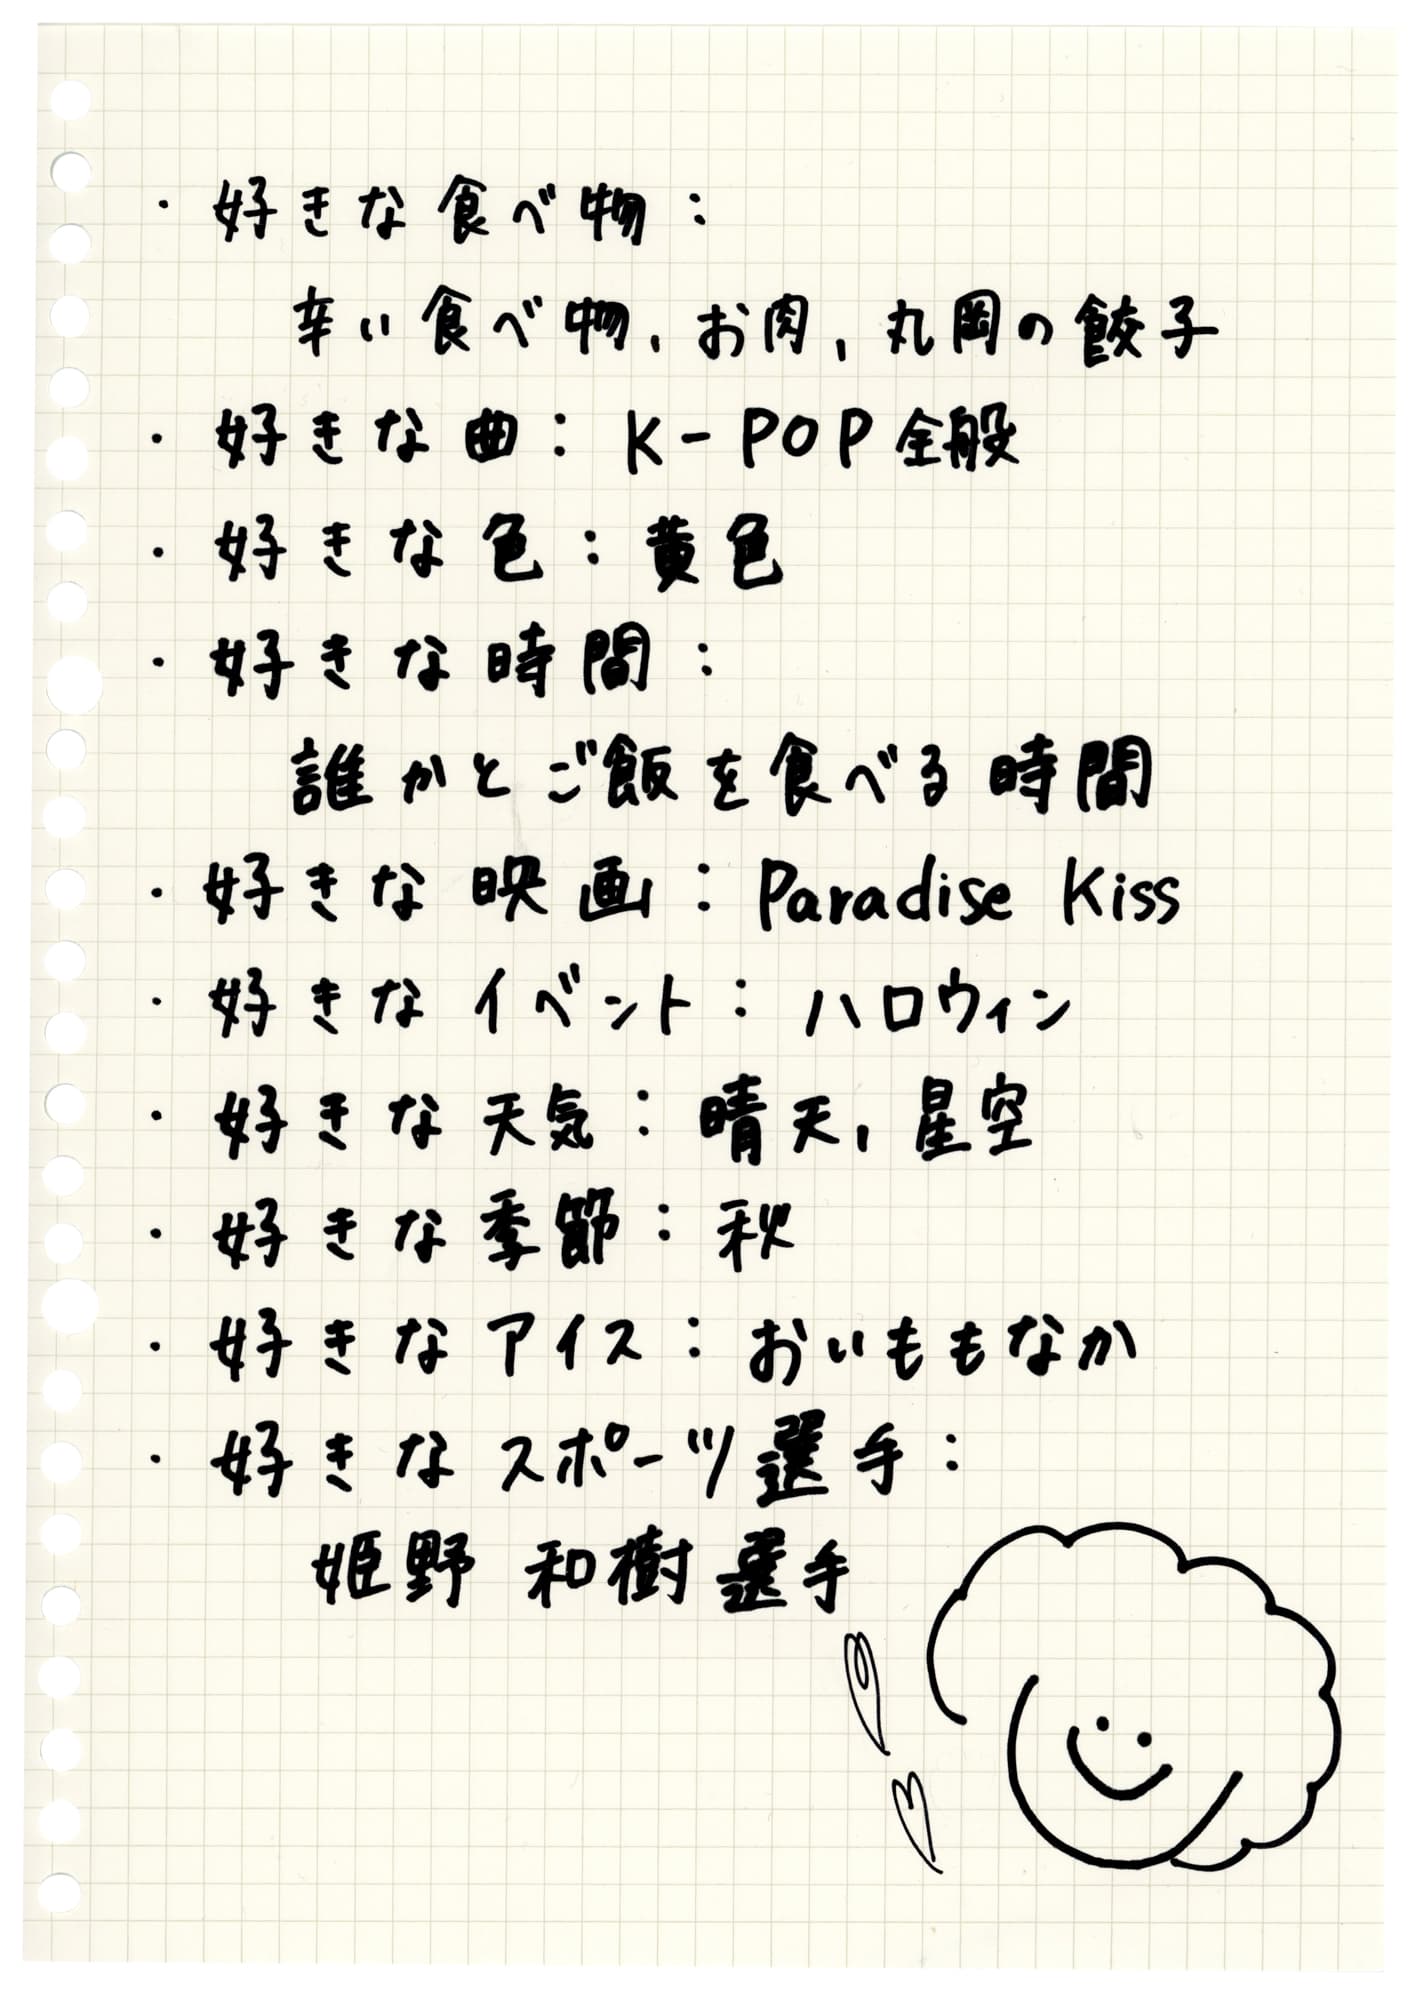 ・好きな食べ物：
辛い食べ物、お肉、丸岡の餃子
・好きな曲：K-POP全般
・好きな色：黄色
・好きな時間：
誰かとご飯を食べる時間
・好きな映画：Paradise Kiss
・好きなイベント：ハロウィン
・好きな天気：晴天、星空
・好きな季節：秋
・好きなアイス：おいももなか
・好きなスポーツ選手：
姫野 和樹選手